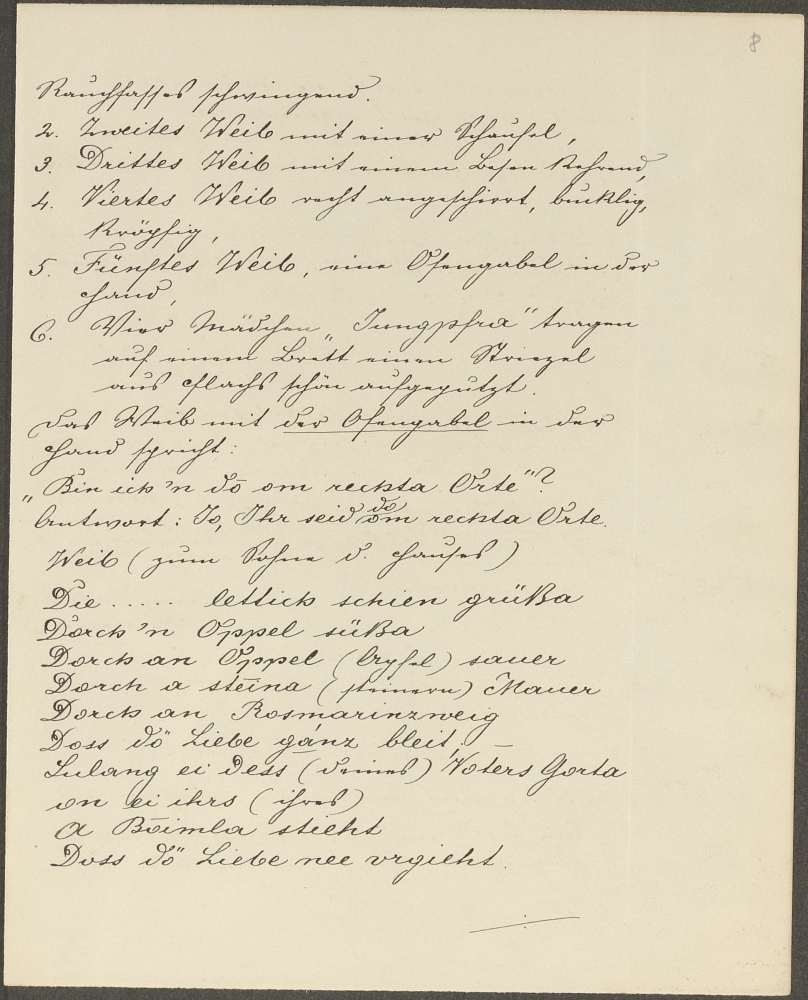 8
Rauchfasses schwingend.
2. Zweites Weib mit einer Schaufel,
3. Drittes Weib mit einem Besen kehrend,
4. Viertes Weib recht angeschirrt, bucklig,
kröpfig,
5. Fünftes Weib, eine Ofengabel in der
Hand,
6. Vier Mädchen „Jungpfra" tragen
auf einem Brett einen Striezel
aus Flachs schön aufgeputzt.
Das Weib mit der Ofengabel in der
Hand spricht:
„Bin ich'n dō om reckta Orte"?
Antwort: Jo, Ihr seid do om reckta Orte.
Weib (zum Sohne d. Hauses)
Die ..... lettich schien grüßa
Dorch'n Oppel süßa
Dorch an Oppel (Apfel) sauer
Dorch a steina (steinern) Mauer
Dorch an Rosmarinzweig
Doss dö Liebe gánz bleit, –
Sulang ei dess (deines) Voters Gorta
on ei ihrs (ihres)
A Böimla stieht
Doss dö Liebe nee vrgieht.